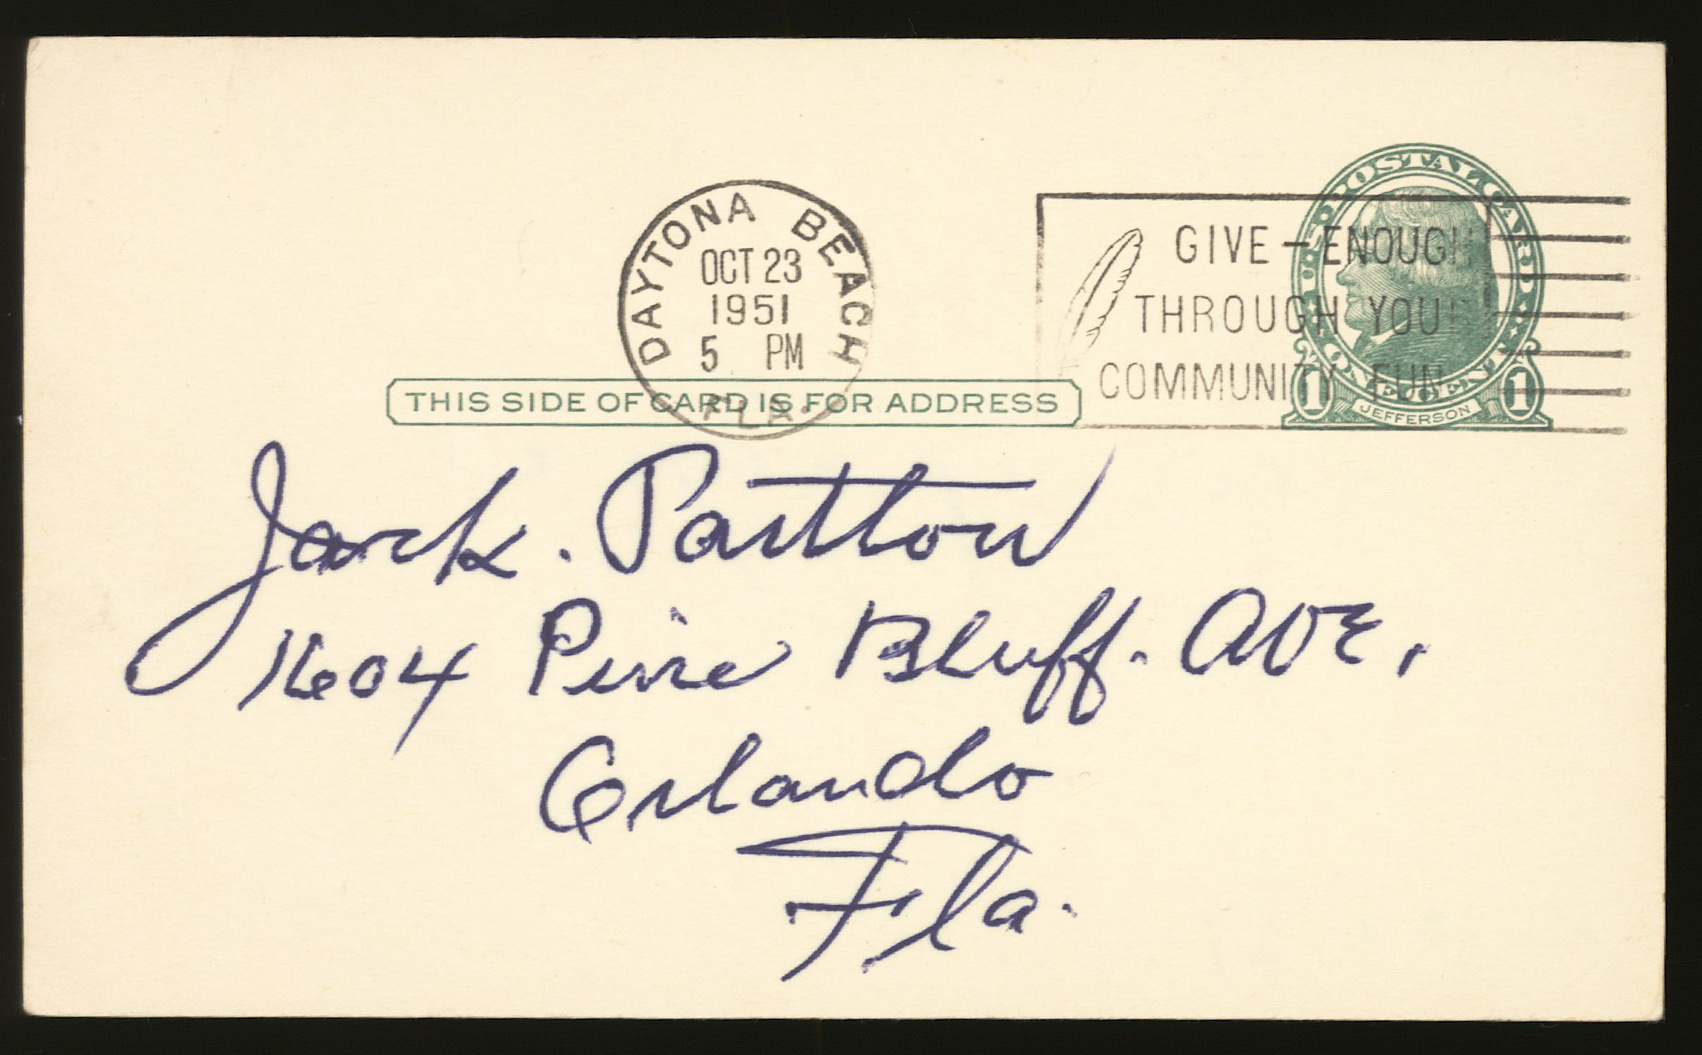 U·S·POSTAL CARD
DAYTONA BEACH
OCT 23
1951
5 PM
FLA.
GIVE – ENOUGH
THROUGH YOUR
COMMUNITY FUND
ONE CENT
1 JEFFERSON 1
THIS SIDE OF CARD IS FOR ADDRESS
Jack. Parttow
1604 Pine Bluff. AVE,
Orlando
Fla.